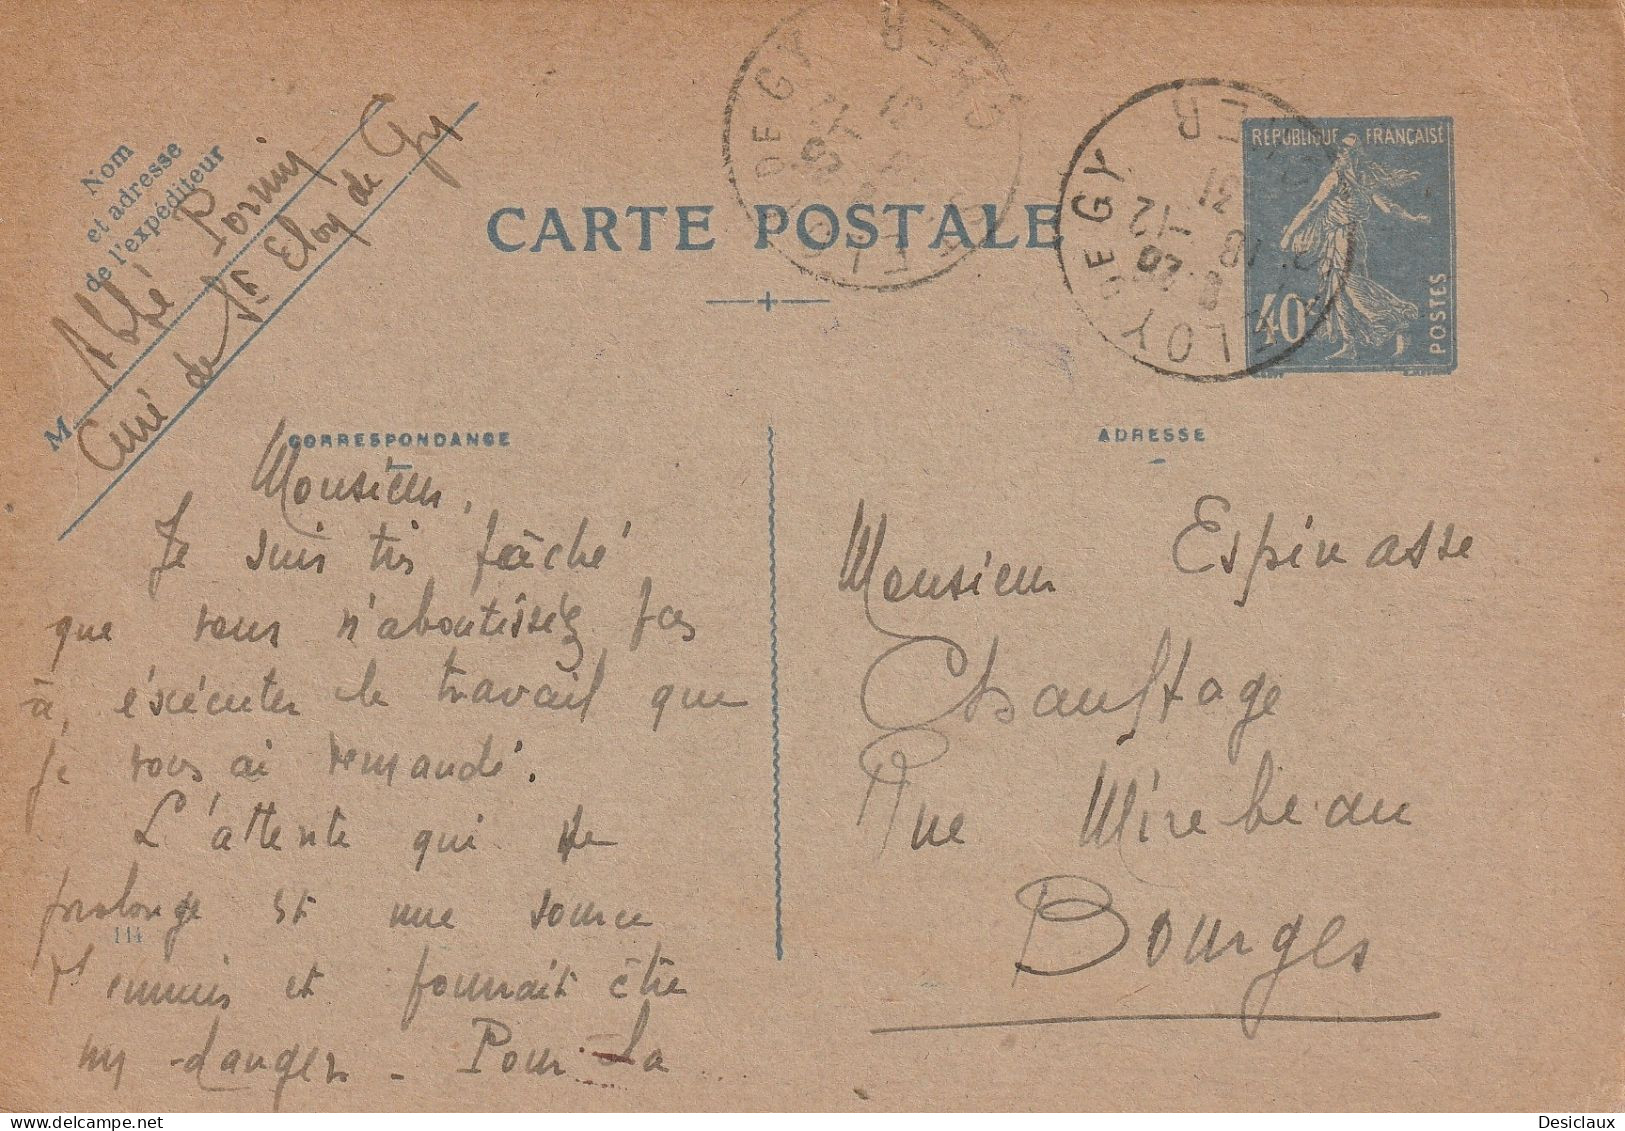 Nom
et adresse
de l'expéditeur
M. Abbé Pornin
Curé de St Eloy de Gy
CARTE POSTALE
REPUBLIQUE FRANÇAISE
40
POSTES
CHER
DE GY
CHER
ELOY DE GY
18 -12
31
CORRESPONDANCE
ADRESSE
Monsieur,
Je suis très fâché
que vous n'aboutissiez pas
à éxécuter le travail que
je vous ai demandé.
L'attente qui se
prolonge est une source
d'ennuis et pourrait être
un danger - Pour la
114
Monsieur Espinasse
Chauffage
Rue Mirebeau
Bourges
Desiclaux